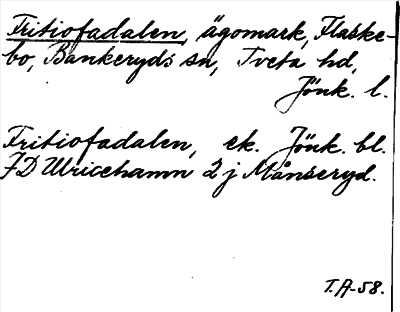 Fritiofadalen, ägomark, Flaske-
bo, Bankeryds sn, Tveta hd,
Jönk. l.
Fritiofadalen, ek. Jönk. bl.
JD Ulricehamn 2 j Månseryd.
T.A-58.